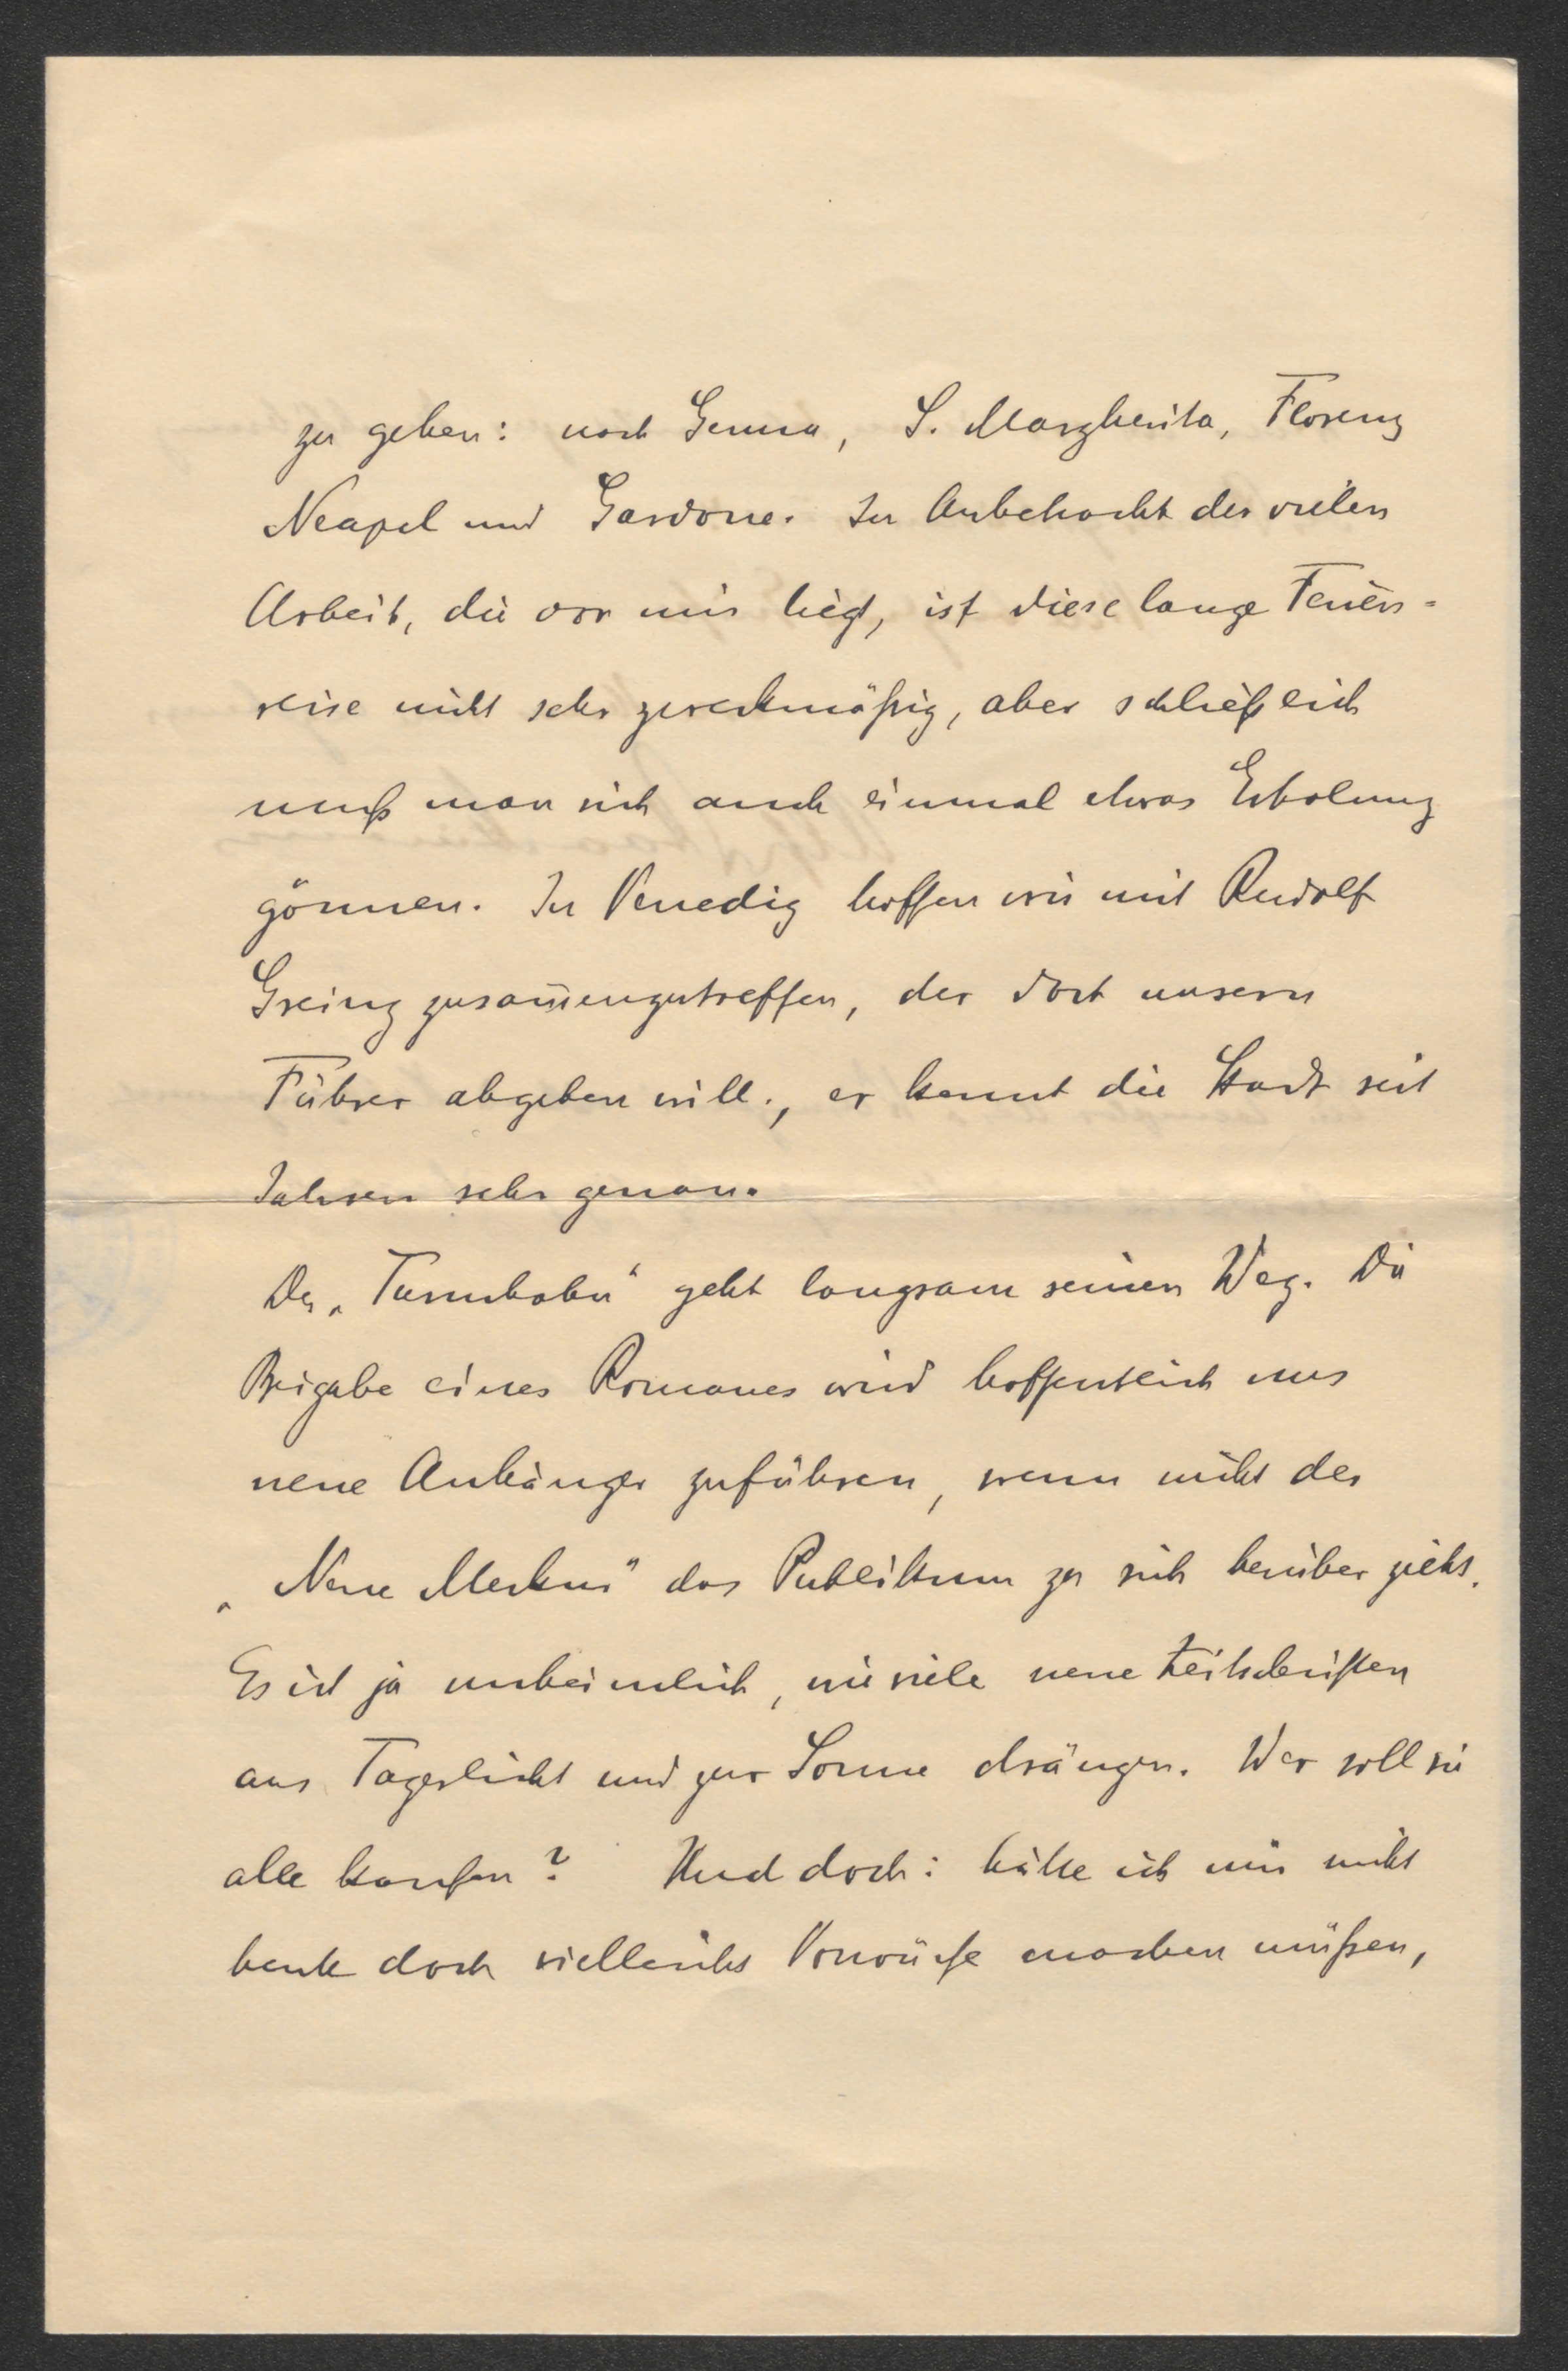 zu gehen: nach Genua, S. Margherita, Florenz
Neapel und Gardone. In Anbetracht der vielen
Arbeit, die vor mir liegt, ist diese lange Ferien-
reise nicht sehr zweckmäßig, aber schließlich
muß man sich auch einmal etwas Erholung
gönnen. In Venedig hoffen wir mit Rudolf
Greinz zusam̅enzutreffen, der dort unsern
Führer abgeben will., er kennt die Stadt seit
Jahren sehr genau.
Der „Turmhahn“ geht langsam seinen Weg. Die
Beigabe eines Romanes wird hoffentlich uns
neue Anhänger zuführen, wenn nicht der
„Neue Merkur“ das Publikum zu sich herüber zieht.
Es ist ja unheimlich, wie viele neue Zeitschriften
ans Tageslicht und zur Sonne drängen. Wer soll sie
alle kaufen? Und doch: hätte ich mir nicht
heute doch vielleicht Vorwürfe machen müßen,